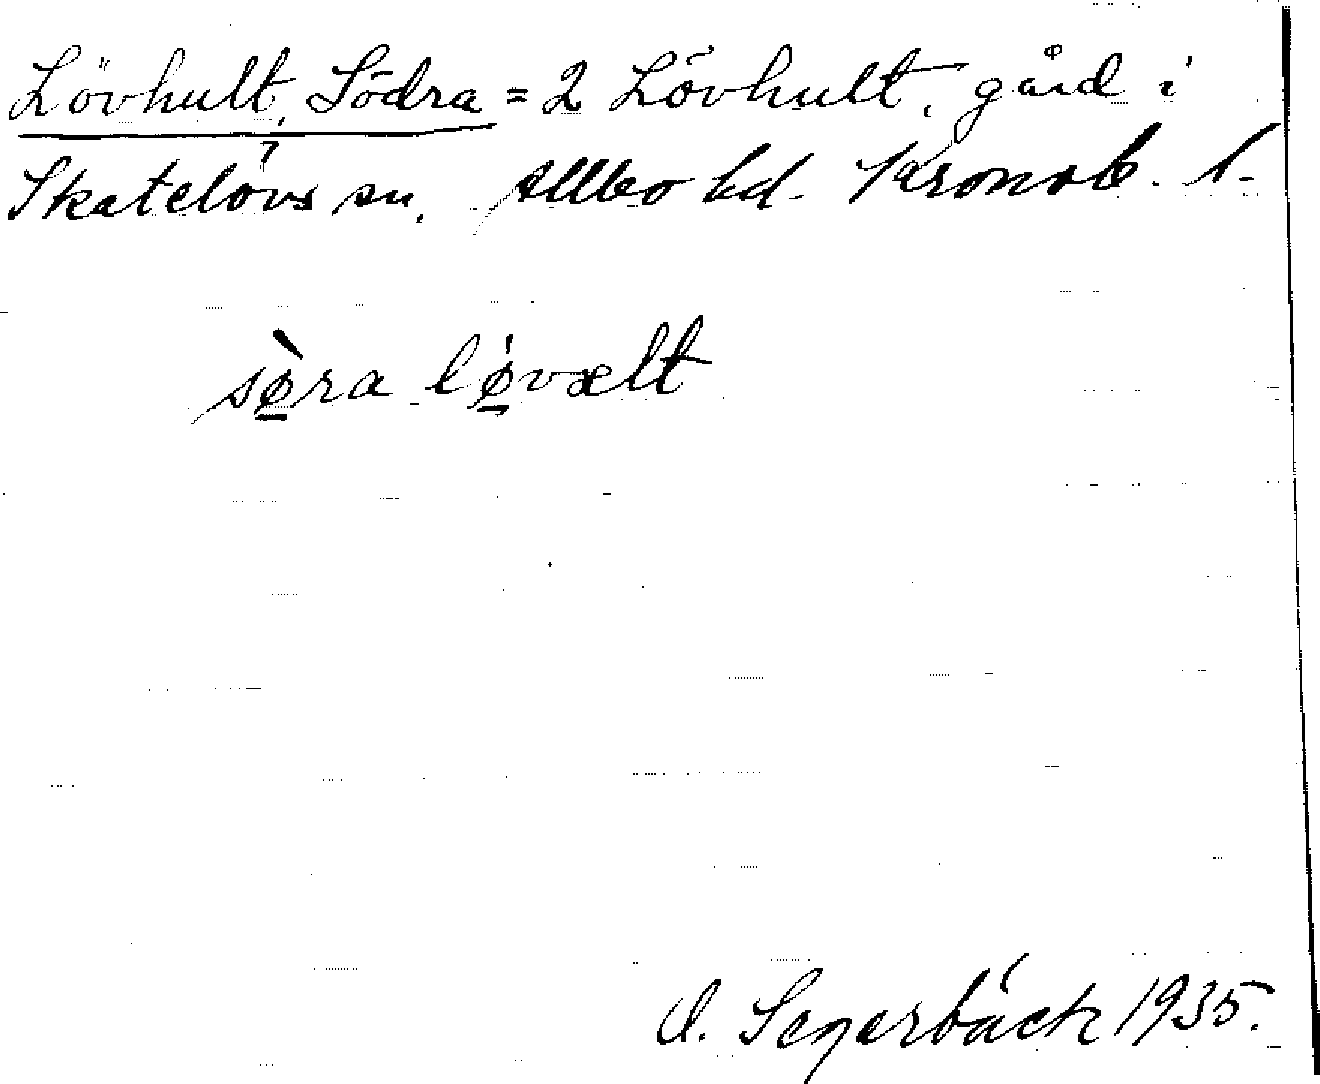 Lövhult, Södra = 2 Lövhult, gård i
Skatelövs sn, Allbo hd. Kronob. l.
sø̀ra lǿvælt
O. Segerbäck 1935.